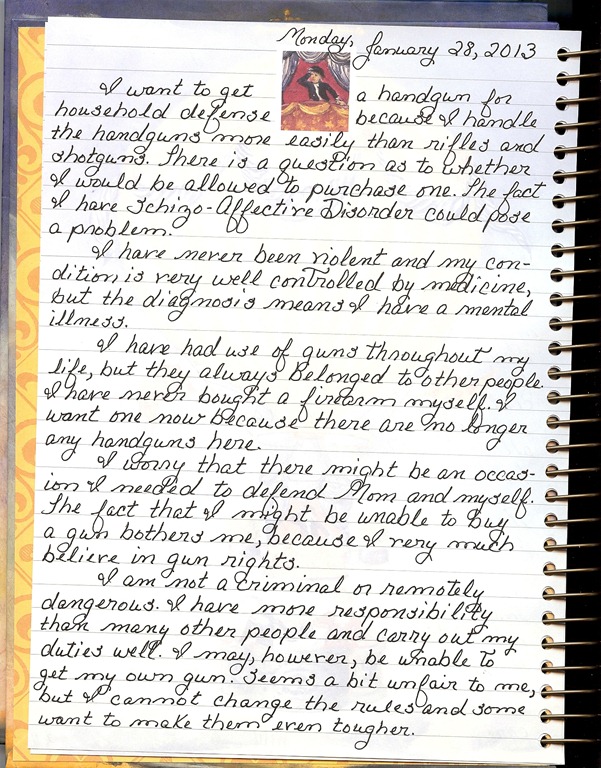 Monday, January 28, 2013
I want to get a handgun for
household defense because I handle
the handguns more easily than rifles and
shotguns. There is a question as to whether
I would be allowed to purchase one. The fact
I have Schizo-Affective Disorder could pose
a problem.
I have never been violent and my con-
dition is very well controlled by medicine,
but the diagnosis means I have a mental
illness.
I have had use of guns throughout my
life, but they always belonged to other people.
I have never bought a firearm myself. I
want one now because there are no longer
any handguns here.
I worry that there might be an occas-
ion I needed to defend Mom and myself.
The fact that I might be unable to buy
a gun bothers me, because I very much
believe in gun rights.
I am not a criminal or remotely
dangerous. I have more responsibility
than many other people and carry out my
duties well. I may, however, be unable to
get my own gun. Seems a bit unfair to me,
but I cannot change the rules and some
want to make them even tougher.